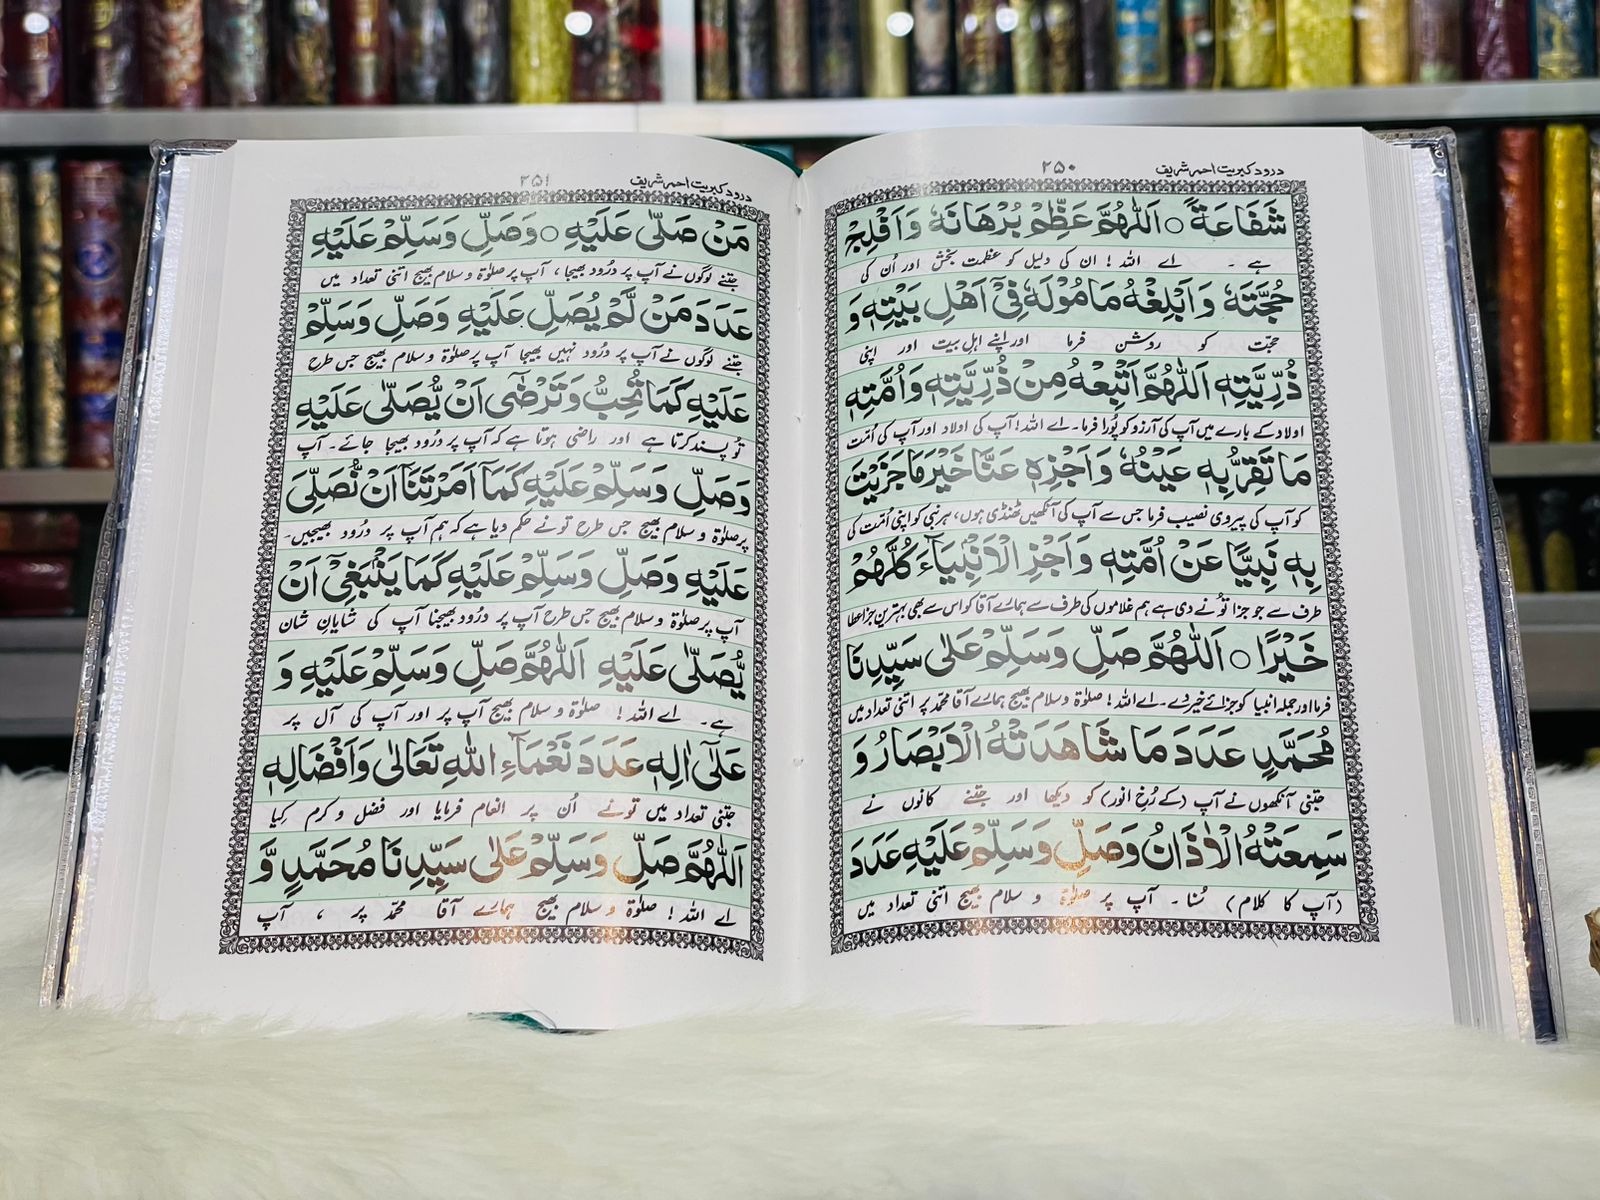 درود کبریت احمر شریف
۲۵۰
شَفَاعَةً ○ اَللّٰهُمَّ عَظِّمْ بُرْهَانَهٗ وَاَفْلِجْ
ہے ۔ اے اللہ ! ان کی دلیل کو عظمت بخش اور اُن کی
حُجَّتَهٗ وَاَبْلِغْهُ مَامُوْلَهٗ فِیْٓ اَهْلِ بَیْتِهٖ وَ
حجّت کو روشن فرما اور اپنے اہل بیت اور اپنی
ذُرِّیَّتِهٖ اَللّٰهُمَّ اَتْبِعْهُ مِنْ ذُرِّیَّتِهٖ وَاُمَّتِهٖ
اولاد کے بارے میں آپ کی آرزو کو پُورا فرما۔ اے اللہ! آپ کی اولاد اور آپ کی اُمّت
مَا تَقِرُّ بِهٖ عَیْنُهٗ وَاَجْزِهٖ عَنَّا خَیْرَ مَا جَزَیْتَ
کو آپ کی پیروی نصیب فرما جس سے آپ کی آنکھیں ٹھنڈی ہوں، ہر نبی کو اپنی اُمّت کی
بِهٖ نَبِیًّا عَنْ اُمَّتِهٖ وَاَجْزِ الْاَنْبِیَآءَ کُلَّهُمْ
طرف سے جو جزا تُو نے دی ہے ہم غلاموں کی طرف سے ہمارے آقا کو اس سے بھی بہترین جزا عطا
خَیْرًا ○ اَللّٰهُمَّ صَلِّ وَسَلِّمْ عَلٰی سَیِّدِنَا
فرما اور جملہ انبیا کو جزائے خیر دے۔ اے اللہ! صلوٰۃ و سلام بھیج ہمارے آقا محمّد پر اتنی تعداد میں
مُحَمَّدٍ عَدَدَ مَا شَاهَدَتْهُ الْاَبْصَارُ وَ
جتنی آنکھوں نے آپ (کے رُخِ انور) کو دیکھا اور جتنے کانوں نے
سَمِعَتْهُ الْاٰذَانُ وَصَلِّ وَسَلِّمْ عَلَیْهِ عَدَدَ
(آپ کا کلام) سُنا ۔ آپ پر صلوٰۃ و سلام بھیج اتنی تعداد میں
درود کبریت احمر شریف
۲۵۱
مَنْ صَلّٰی عَلَیْهِ ○ وَصَلِّ وَسَلِّمْ عَلَیْهِ
جتنے لوگوں نے آپ پر دُرُود بھیجا ، آپ پر صلوٰۃ و سلام بھیج اتنی تعداد میں
عَدَدَ مَنْ لَّمْ یُصَلِّ عَلَیْهِ وَصَلِّ وَسَلِّمْ
جتنے لوگوں نے آپ پر دُرُود نہیں بھیجا آپ پر صلوٰۃ و سلام بھیج جس طرح
عَلَیْهِ کَمَا تُحِبُّ وَتَرْضٰٓی اَنْ یُّصَلّٰی عَلَیْهِ
تُو پسند کرتا ہے اور راضی ہوتا ہے کہ آپ پر دُرُود بھیجا جائے ۔ آپ
وَصَلِّ وَسَلِّمْ عَلَیْهِ کَمَآ اَمَرْتَنَآ اَنْ نُّصَلِّیَ
پر صلوٰۃ و سلام بھیج جس طرح تو نے حکم دیا ہے کہ ہم آپ پر دُرُود بھیجیں۔
عَلَیْهِ وَصَلِّ وَسَلِّمْ عَلَیْهِ کَمَا یَنْۢبَغِیْٓ اَنْ
آپ پر صلوٰۃ و سلام بھیج جس طرح آپ پر دُرُود بھیجنا آپ کی شایانِ شان
یُّصَلّٰی عَلَیْهِ اَللّٰهُمَّ صَلِّ وَسَلِّمْ عَلَیْهِ وَ
ہے ۔ اے اللہ ! صلوٰۃ و سلام بھیج آپ پر اور آپ کی آل پر
عَلٰٓی اٰلِهٖ عَدَدَ نَعْمَآءِ اللّٰهِ تَعَالٰی وَاَفْضَالِهٖ
جتنی تعداد میں تونے اُن پر انعام فرمایا اور فضل و کرم کِیا
اَللّٰهُمَّ صَلِّ وَسَلِّمْ عَلٰی سَیِّدِنَا مُحَمَّدٍ وَّ
اے اللہ ! صلوٰۃ و سلام بھیج ہمارے آقا محمّد پر ، آپ